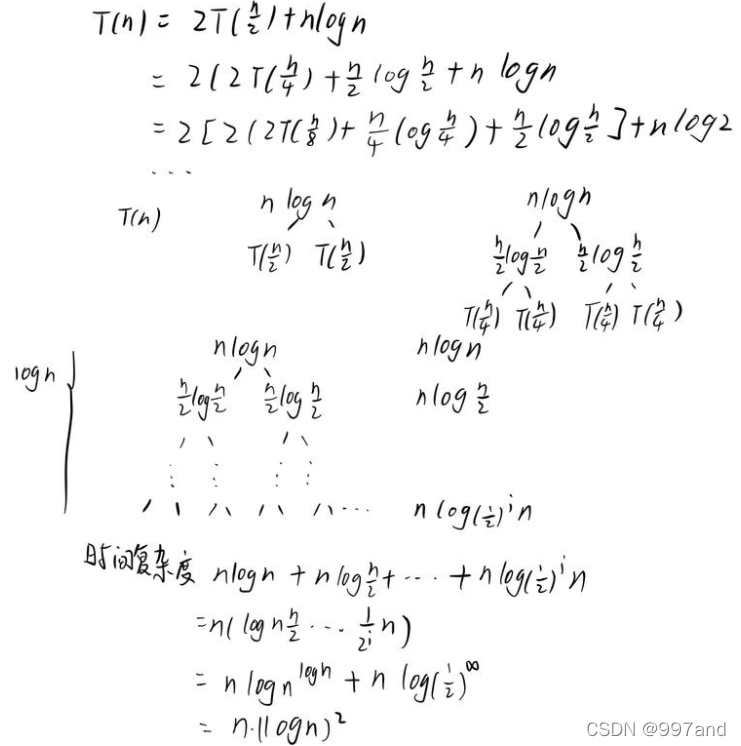 T(n) = 2T(n/2)+nlogn
= 2(2T(n/4)+n/2 log n/2 + n logn
= 2[2(2T(n/8)+ n/4(log n/4)+ n/2 log n/2]+nlog2
...
T(n) nlogn nlogn
T(n/2) T(n/2) n/2 log n/2 n/2 log n/2
T(n/4) T(n/4) T(n/4) T(n/4)
nlogn nlogn
logn n/2 log n/2 n/2 log n/2 nlog n/2
... nlog(1/2)^i n
时间复杂度 nlogn + nlog n/2 + ... + nlog(1/2)^i n
=n(logn n/2 ... 1/2^i n)
= nlogn^logn + n log(1/2)^∞
= n·(logn)^2
CSDN @997and